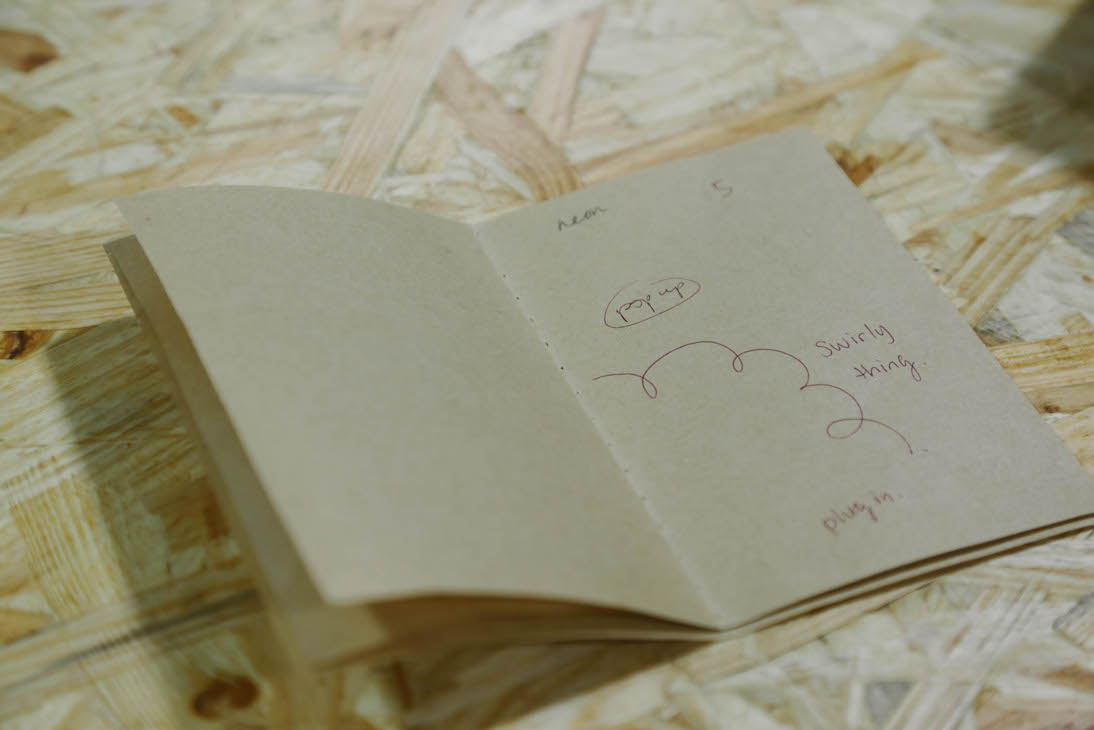 neon
5
pop up
swirly
thing.
plug in.